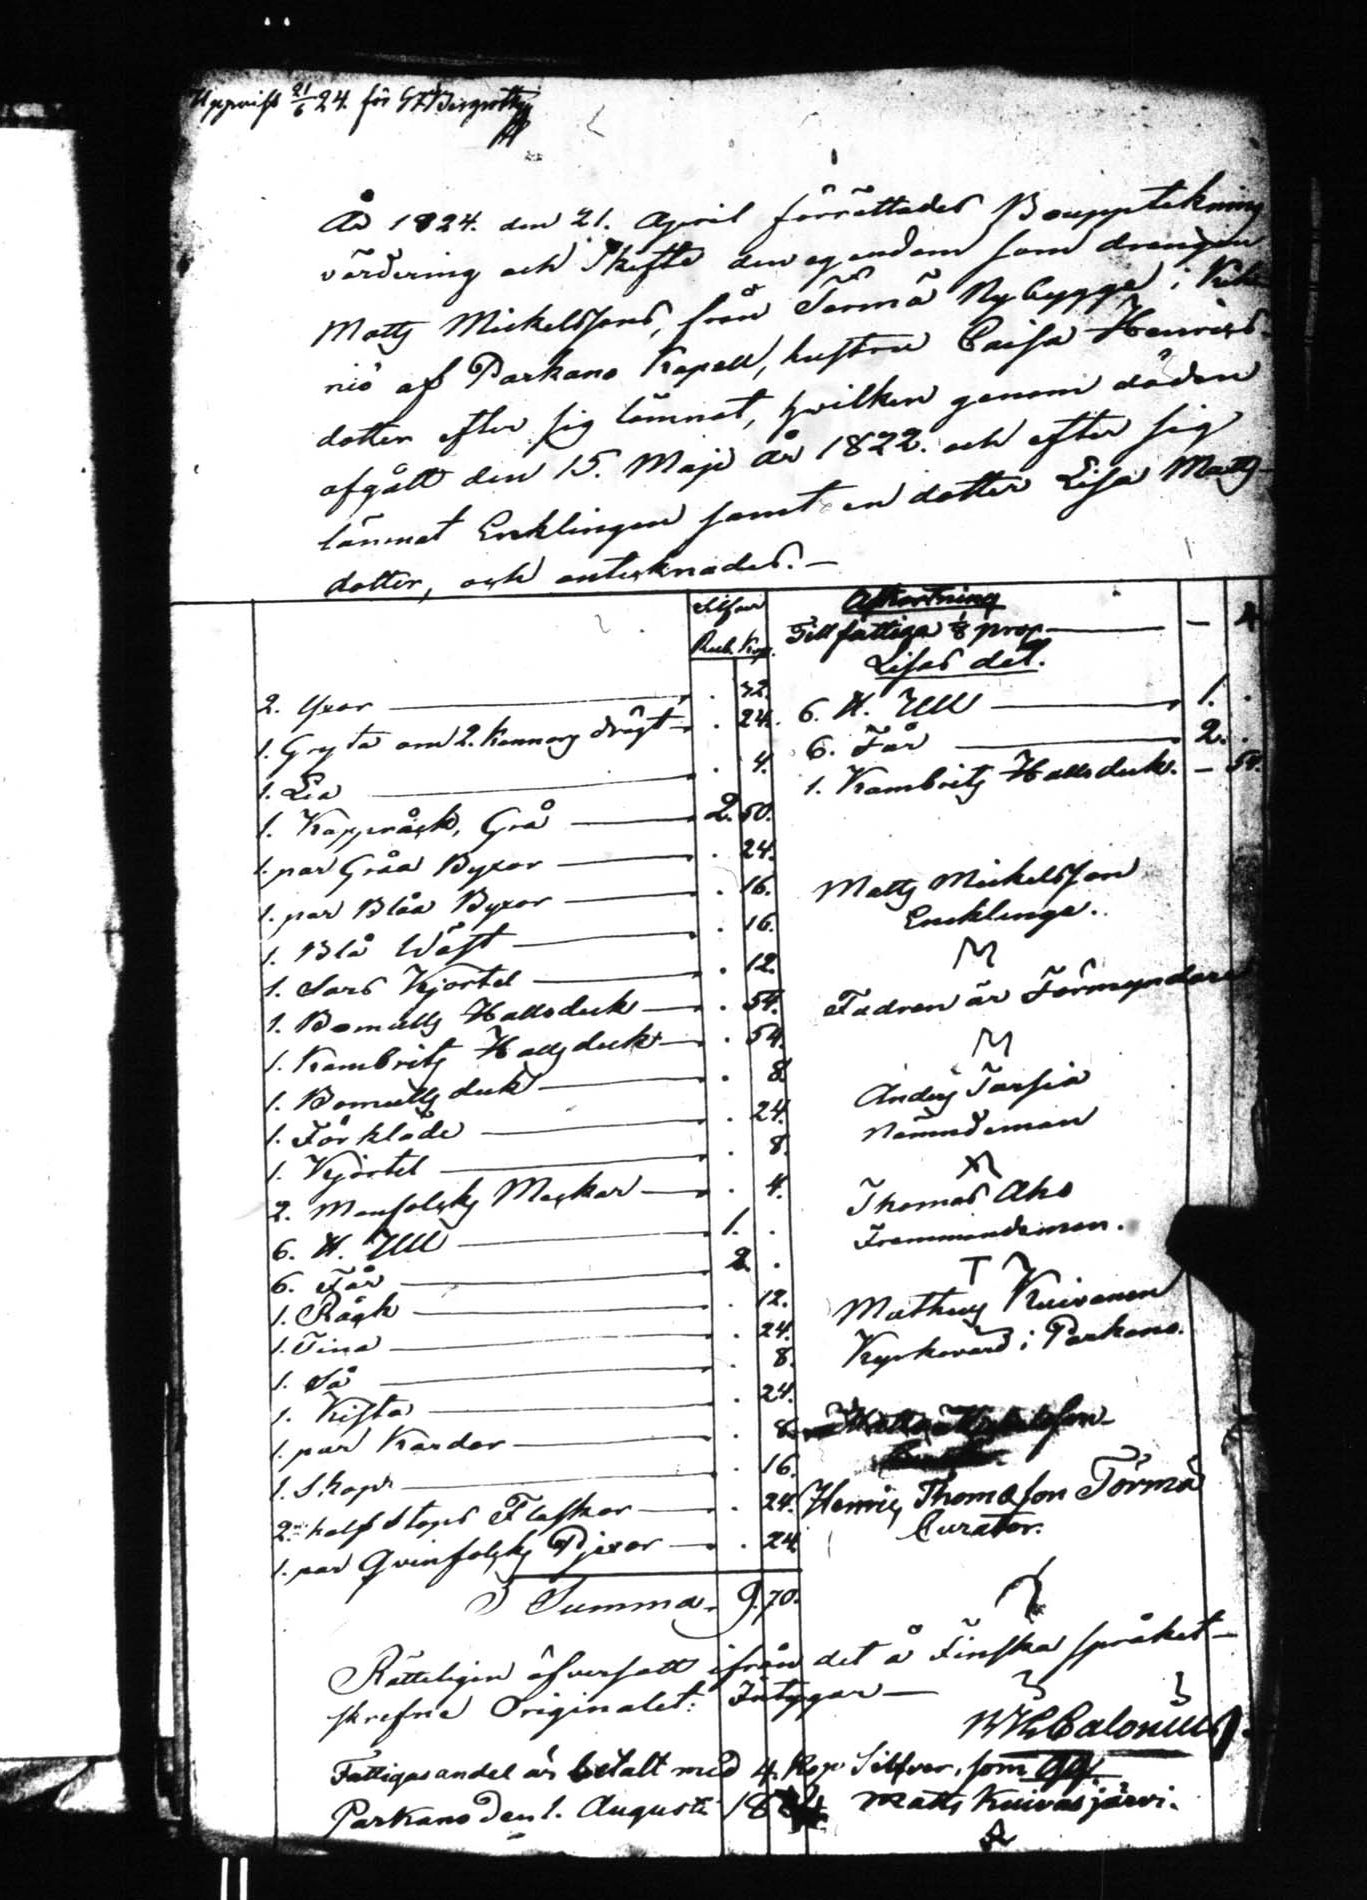 Uppvist 21/6 24. för
År 1824. den 21. April förrättades Bouppteckning
värdering och Skifte den egendom som drängen
Matts Mickelssons, från Törmä Nybygge i Kih
niö af Parkano Kapell, hustru Caisa Henrics-
dotter efter sig lämnat, hvilken genom döden
afgått den 15. Maji år 1822. och efter sig
lämnat Enklingen samt en dotter Lisa Matts-
dotter, och antecknades.-
Silfver
Rub. Kop.
2. Yxor . 32.
1. Gryta om 2. Kannors drägt . 24.
1. Lia . 4.
1. Kappråck, Grå 2. 50.
1. par Gråa Byxor . 24.
1. par Blåa Byxor . 16.
1. Blå Wäst . 16.
1. Sars Kjortel . 12.
1. Bomulls Halsduk . 54.
1. Kambrits Halsduk . 54
1. Bomulls duk . 8
1. Förkläde . 24.
1. Kjortel . 8.
2. Manfolks Mackar . 4.
6. ℔. Ull 1. .
6. Får 2. .
1. Räck . 12.
1. Tina . 24.
1. Så . 8.
1. Kista . 24.
1. par Kardor . 8
1. Skopa . 16.
2. half Stops Flaskor . 24.
1. par Qvinfolks Pjexor . 24
Summa. 9. 70.
Afkortning
Till fattiga 1/8 proc - 4
Lisas del.
6. ℔. Ull 1. .
6. Får 2. .
1. Kambrits Halsduk. - 54.
Matts Mickelsson
Encklinge.
Fadren är Förmyndare
Anders Tarsia
Nämndeman
Thomas Aho
Fremmandeman.
T
Mathus Kuivanen
Kyrkovärd i Parkano.
Henric Thomasson Törmä
Curator.
Rätteligen öfversatt ifrån det å Finska språket
skrefne Originalet: Intygar
Calonius
Fattigas andel är betalt med 4. Kop Silfver, som
Parkano den 1. Augusti 1824 Matts Kuivasjärvi.